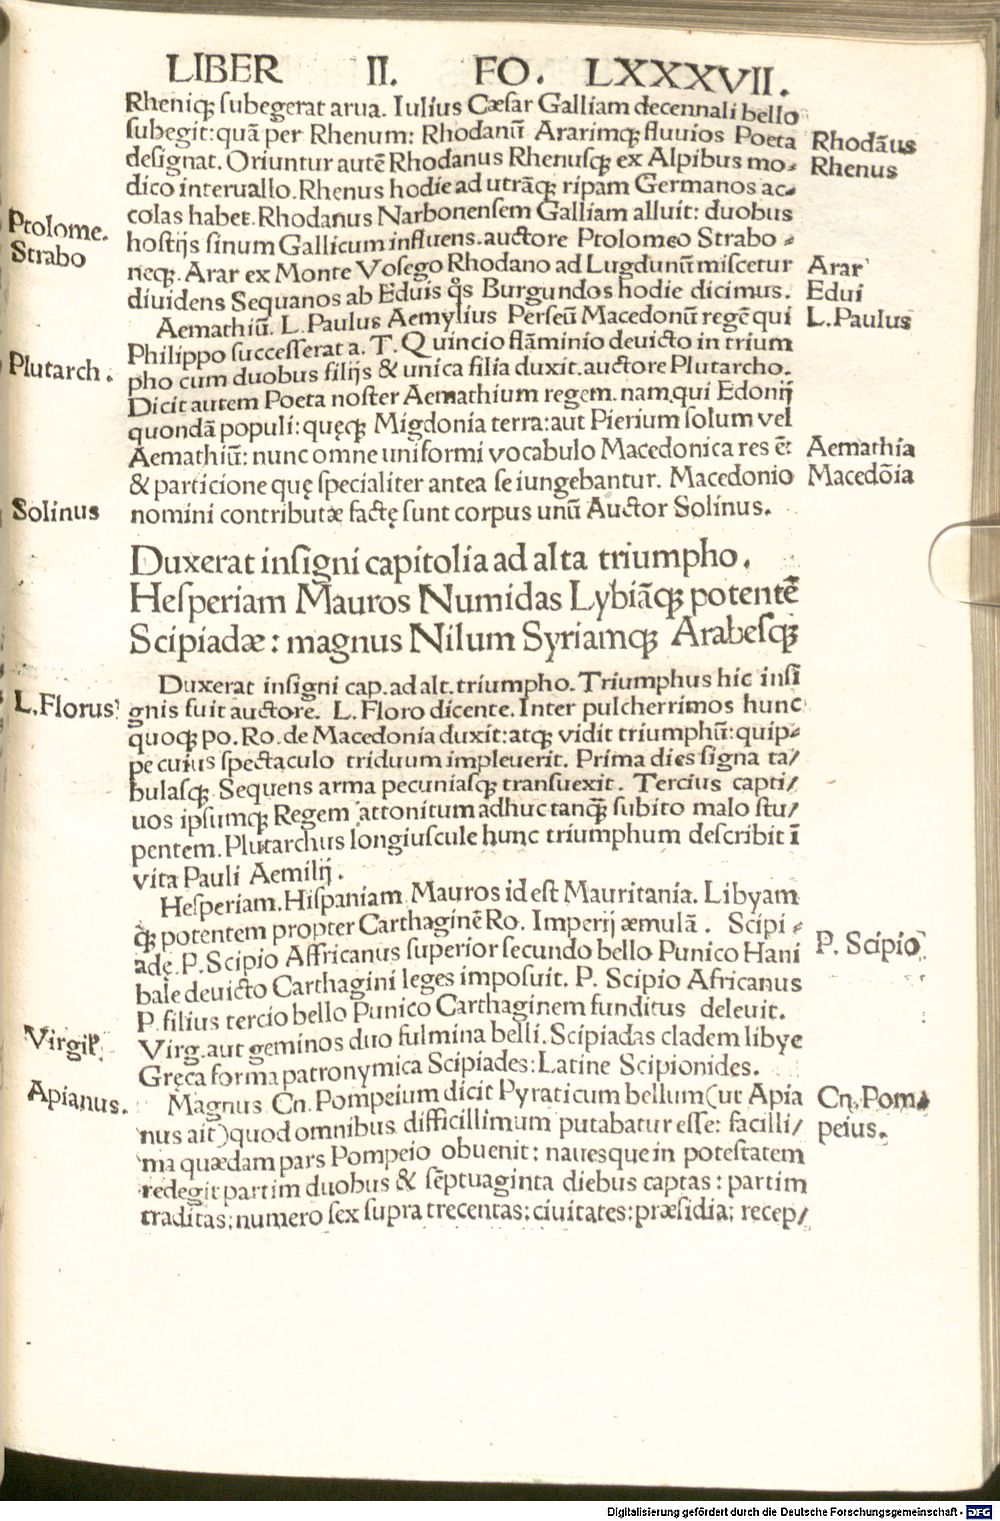 LIBER II. FO. LXXXVII.
Rheniqꝫ subegerat arua. Iulius Cæsar Galliam decennali bello
subegit: quā per Rhenum: Rhodanū Ararimqꝫ fluuios Poeta
Rhodāus
designat. Oriuntur autē Rhodanus Rhenusqꝫ ex Alpibus mo⸗
Rhenus
dico interuallo. Rhenus hodie ad utrāqꝫ ripam Germanos ac⸗
colas habet. Rhodanus Narbonensem Galliam alluit: duobus
Ptolome.
hostijs sinum Gallicum influens. auctore Ptolomeo Strabo⸗
Strabo
neqꝫ. Arar ex Monte Vosego Rhodano ad Lugdunū miscetur
Arar
diuidens Sequanos ab Eduis qͦs Burgundos hodie dicimus.
Edui
Aemathiū. L. Paulus Aemylius Perseū Macedonū regē qui
L. Paulus
Philippo successerat a. T. Quincio flāminio deuicto in trium
Plutarch.
pho cum duobus filijs & unica filia duxit. auctore Plutarcho.
Dicit autem Poeta noster Aemathium regem. nam qui Edonij
quondā populi: quęqꝫ Migdonia terra: aut Pierium solum vel
Aemathiū: nunc omne uniformi vocabulo Macedonica res ē:
Aemathia
& particione quę specialiter antea seiungebantur. Macedonio
Macedōia
Solinus
nomini contributæ factę sunt corpus unū Auctor Solinus.
Duxerat insigni capitolia ad alta triumpho.
Hesperiam Mauros Numidas Lybiāqꝫ potentē
Scipiadæ: magnus Nilum Syriamqꝫ Arabesqꝫ
Duxerat insigni cap. ad alt. triumpho. Triumphus hic insī
L. Florus
gnis fuit auctore. L. Floro dicente. Inter pulcherrimos hunc
quoqꝫ po. Ro. de Macedonia duxit: atqꝫ vidit triumphū: quip⸗
pe cuius spectaculo triduum impleuerit. Prima dies signa ta/
bulasqꝫ. Sequens arma pecuniasqꝫ transuexit. Tercius capti/
uos ipsumqꝫ Regem attonitum adhuc tanqꝫ̄ subito malo stu/
pentem. Plutarchus longiuscule hunc triumphum describit ī
vita Pauli Aemilij.
Hesperiam. Hispaniam Mauros id est Mauritania. Libyam
qꝫ potentem propter Carthaginē Ro. Imperij æmulā. Scipi⸗
P. Scipio
adę. P. Scipio Affricanus superior secundo bello Punico Hani
bale deuicto Carthagini leges imposuit. P. Scipio Africanus
P. filius tercio bello Punico Carthaginem funditus deleuit.
Virgiꝉ.
Virg. aut geminos duo fulmina belli. Scipiadas cladem libye
Gręca forma patronymica Scipiades: Latine Scipionides.
Apianus.
Magnus Cn. Pompeium dicit Pyraticum bellum (ut Apia
Cn. Pom⸗
nus ait) quod omnibus difficillimum putabatur esse: facilli/
peius.
ma quædam pars Pompeio obuenit: nauesque in potestatem
redegit partim duobus & sēptuaginta diebus captas: partim
traditas: numero sex supra trecentas: ciuitates: præsidia: recep/
Digitalisierung gefördert durch die Deutsche Forschungsgemeinschaft - DFG